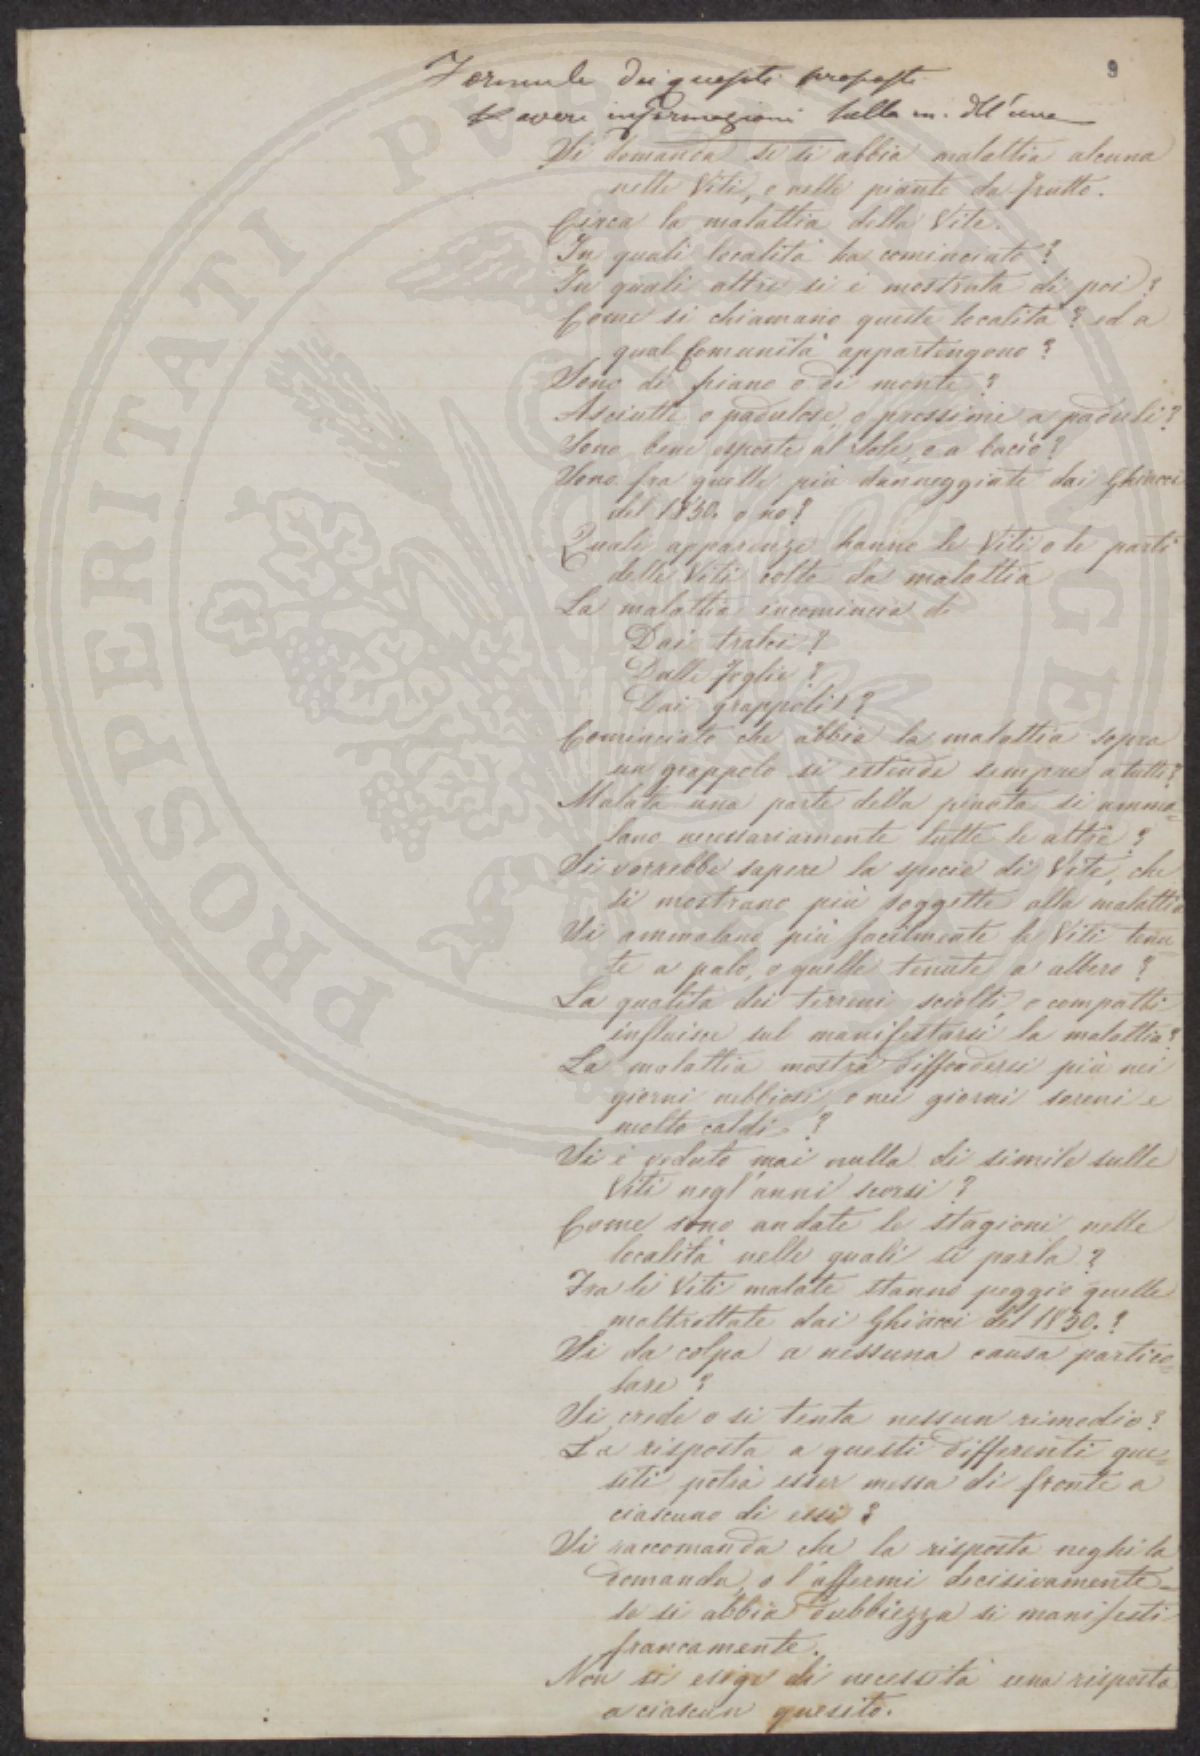 9
Formule dei quesiti proposti
P avere informazioni sulla m. dell'uva
Si domanda se si abbia malattia alcuna
nelle Viti, o nelle piante da frutto.
Circa la malattia della Vite.
In quali località ha cominciato?
In quali altre si è mostrata di poi?
Come si chiamano queste località? ed a
qual Comunità appartengono?
Sono di piano o di monte?
Asciutte o padulose, o prossime a paduli?
Sono bene esposte al Sole, o a bacìo?
Sono fra quelle più danneggiate dai Ghiacci
del 1850. o no?
Quale apparenze hanno le Viti o le parti
delle Viti colte da malattia
La malattia incomincia di
Dai tralci?
Dalle foglie?
Dai grappoli?
Cominciato che abbia la malattia sopra
un grappolo si estende sempre a tutti?
Malata una parte della pianta si amma=
lano necessariamente tutte le altre?
Si vorrebbe sapere la specie di Vite, che
si mostrano più soggette alla malattia
Si ammalano più facilmente le Viti tenu
te a palo, o quelle tenute a albero?
La qualità dei terreni sciolti, o compatti
influisce sul manifestarsi la malattia?
La malattia mostra diffondersi più nei
giorni nebbiosi, o nei giorni sereni e
molto caldi?
Si è veduto mai nulla di simile sulle
Viti negl'anni scorsi?
Come sono andate le stagioni nelle
località nelle quali si parla?
Fra le Viti malate stanno peggio quelle
maltrattate dai Ghiacci del 1850.?
Si da colpa a nessuna causa partico=
lare?
Si crede o si tenta nessun rimedio?
La risposta a questi differenti que=
siti potrà esser messa di fronte a
ciascuno di essi?
Si raccomanda che la risposta neghi la
domanda, o l'affermi decisivamente=
se si abbia dubbiezza si manifesti
francamente.
Non si esige di necessità una risposta
a ciascun quesito.
PROSPERITATI PUBLICAE AUGENDAE